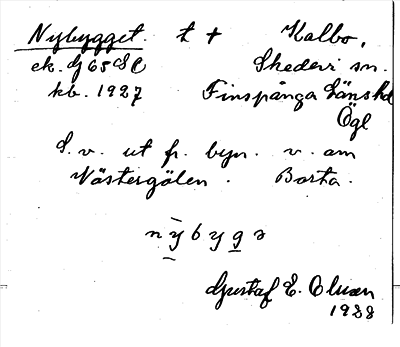 Nybygget. t + Kalbo,
ek. bj 65 SO Skedevi sn.
kb. 1927 Finspånga Länshd
Ögl
S. v. ut fr. byn. v. om
Västergölen. Borta.
nybygə
Gustaf E. Olsson
1928